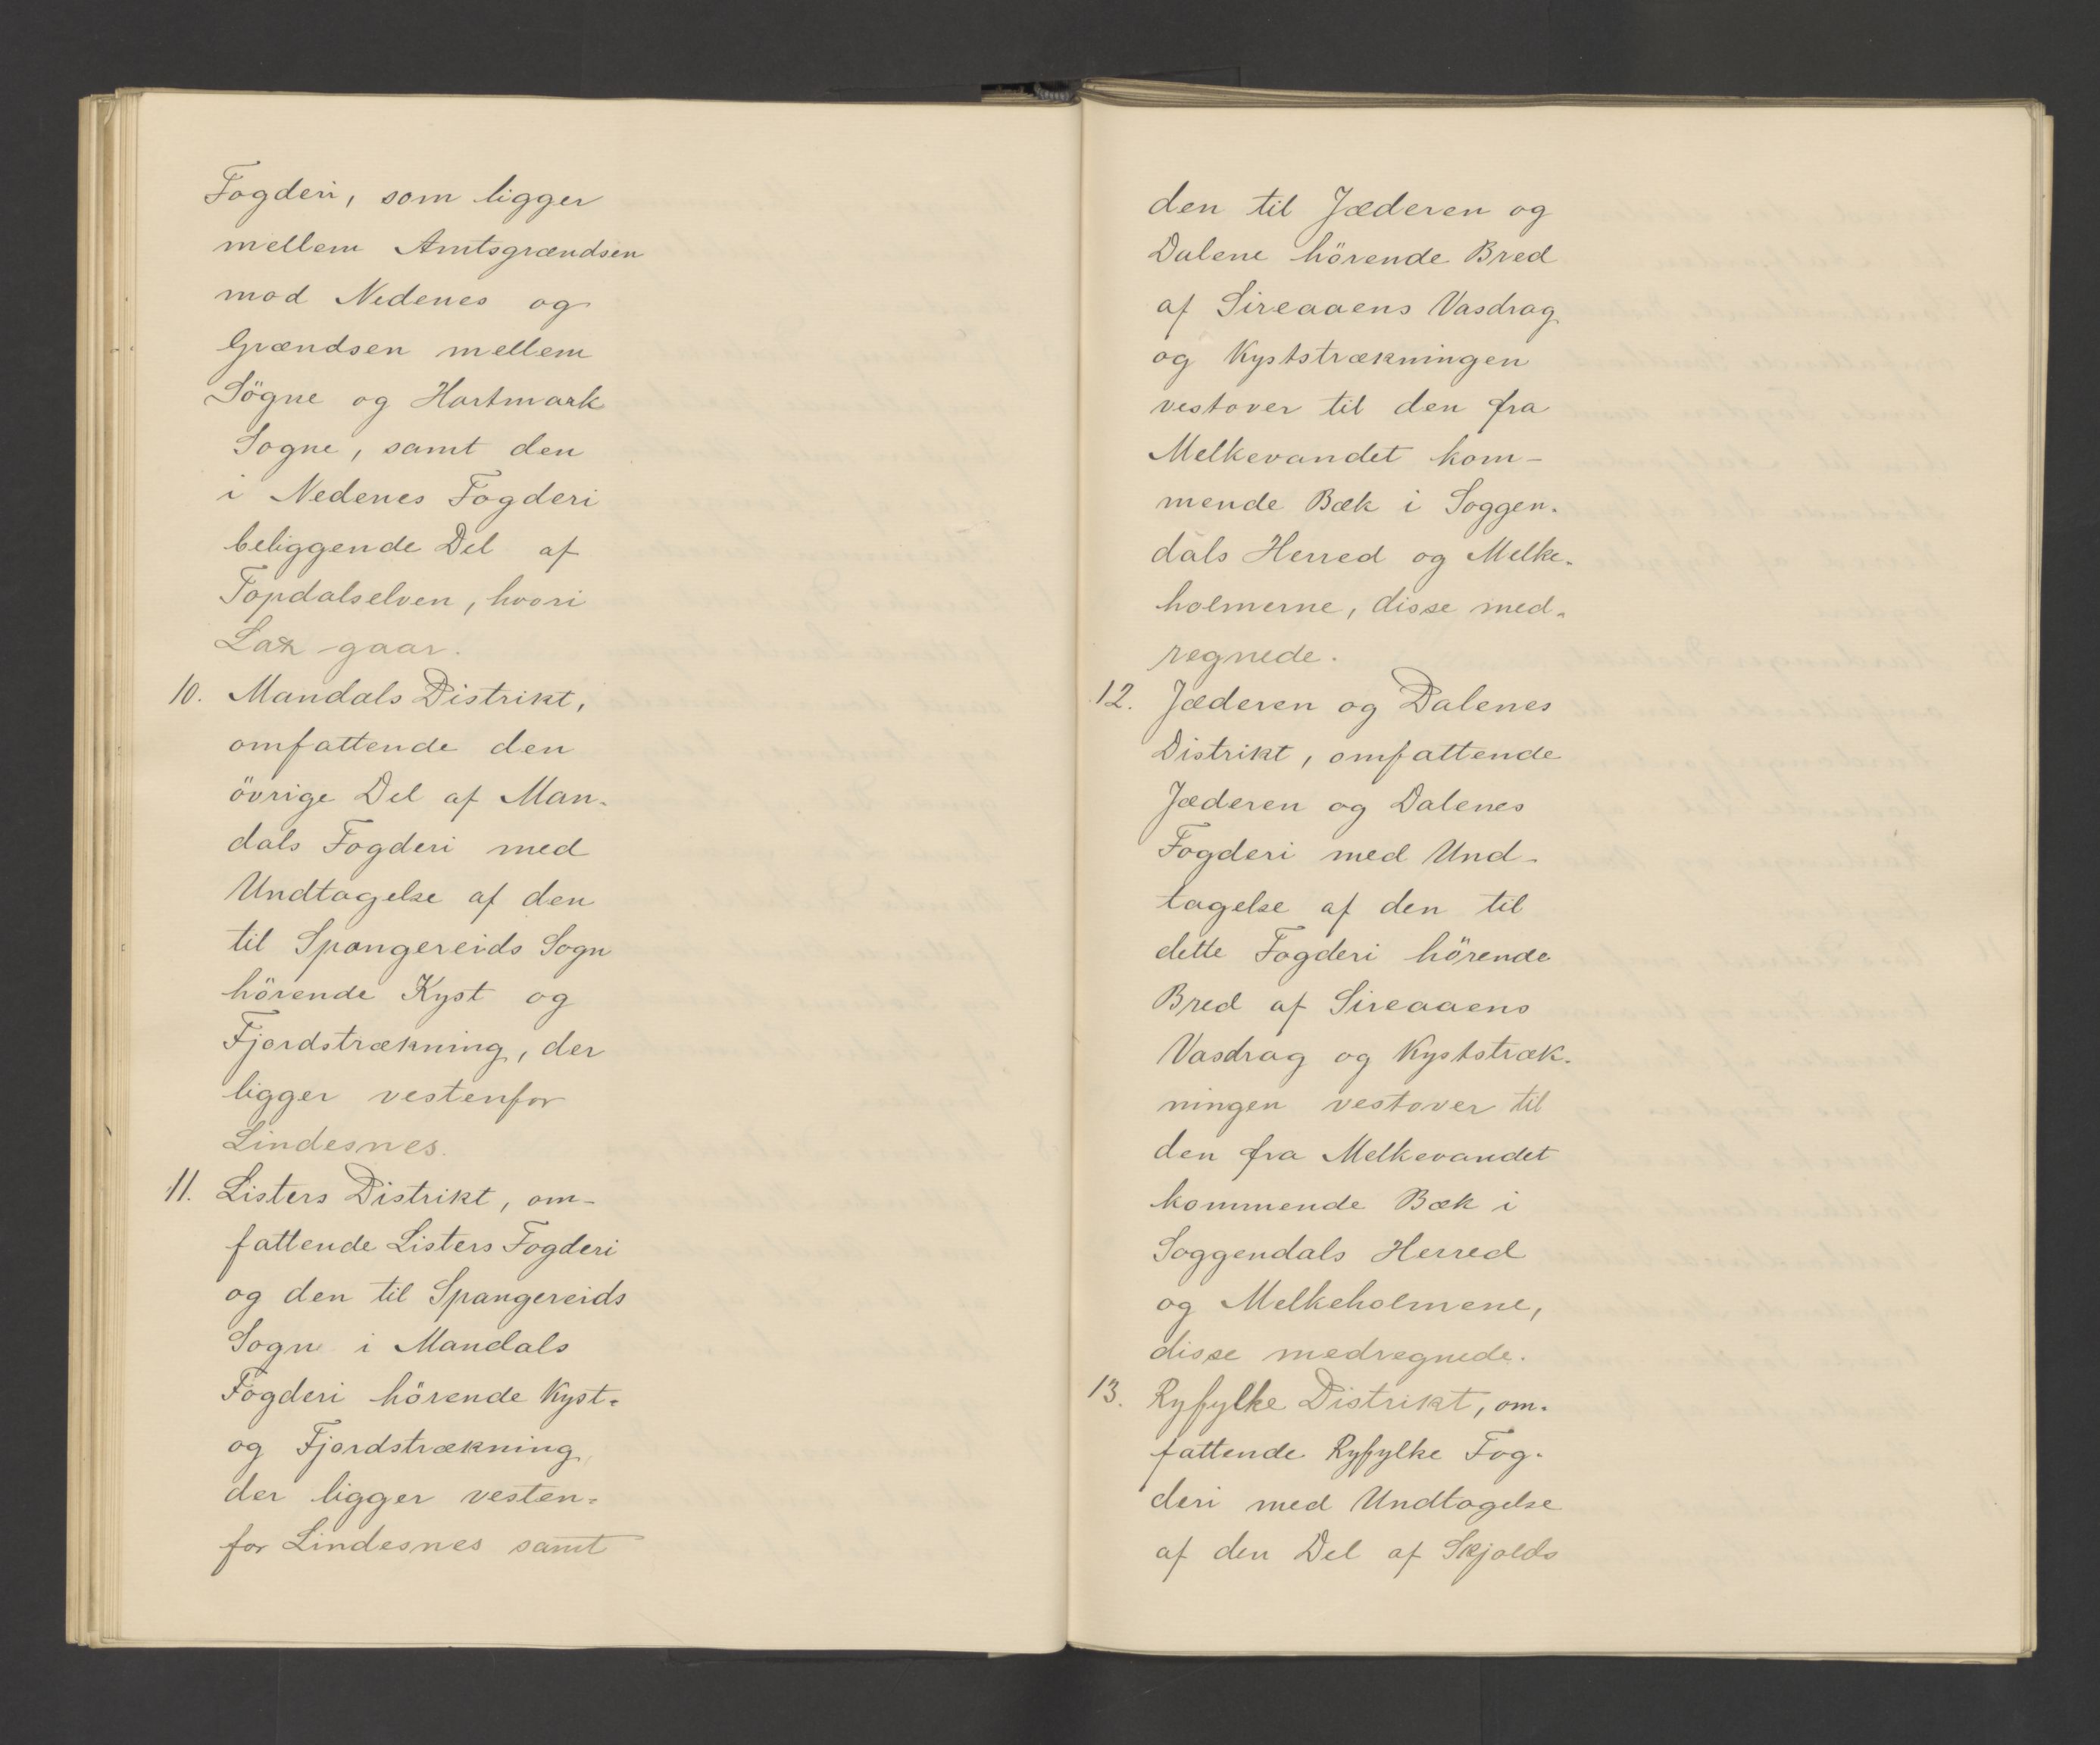 Fogderi, som ligger
mellem Amtsgrændsen
mod Nedenes og
Grændsen mellem
Sögne og Hartmark
Sogne, samt den
i Nedenes Fogderi
beliggende Del af
Topdalselven, hvori
Lax gaar.
10. Mandals Distrikt,
omfattende den
övrige Del af Man-
dals Fogderi med
Undtagelse af den
til Spangereids Sogn
hörende Kyst og
Fjordstrækning, der
ligger vestenfor
Lindesnes.
11. Listers Distrikt, om-
fattende Listers Fogderi
og den til Spangereids
Sogn i Mandals
Fogderi hörende Kyst-
og Fjordstrækning,
der ligger vesten-
for Lindesnes samt
den til Jæderen og
Dalene hörende Bred
af Sireaaens Vasdrag
og Kyststrækningen
vestover til den fra
Melkevandet kom-
mende Bæk i Soggen-
dals Herred og Melke-
holmerne, disse med-
regnede.
12. Jæderen og Dalenes
Distrikt, omfattende
Jæderen og Dalenes
Fogderi med Und-
tagelse af den til
dette Fogderi hörende
Bred af Sireaaens
Vasdrag og Kyststræk-
ningen vestover til
den fra Melkevandet
kommende Bæk i
Soggendals Herred
og Melkeholmene,
disse medregnede.
13. Ryfylke Distrikt, om-
fattende Ryfylke Fog-
deri med Undtagelse
af den Del af Skjolds